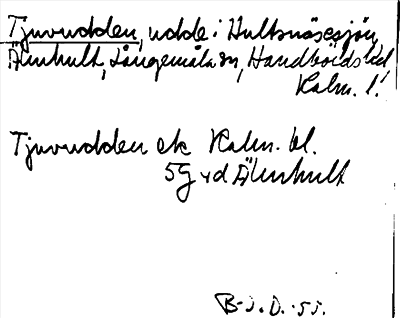 Tjuvudden, udde i Hultsnäsesjön,
Älmhult, Långemåla sn, Handbörds hd
Kalm. l.
Tjuvudden ek Kalm. bl.
5G vd Älmhult
B-J. D. -55.